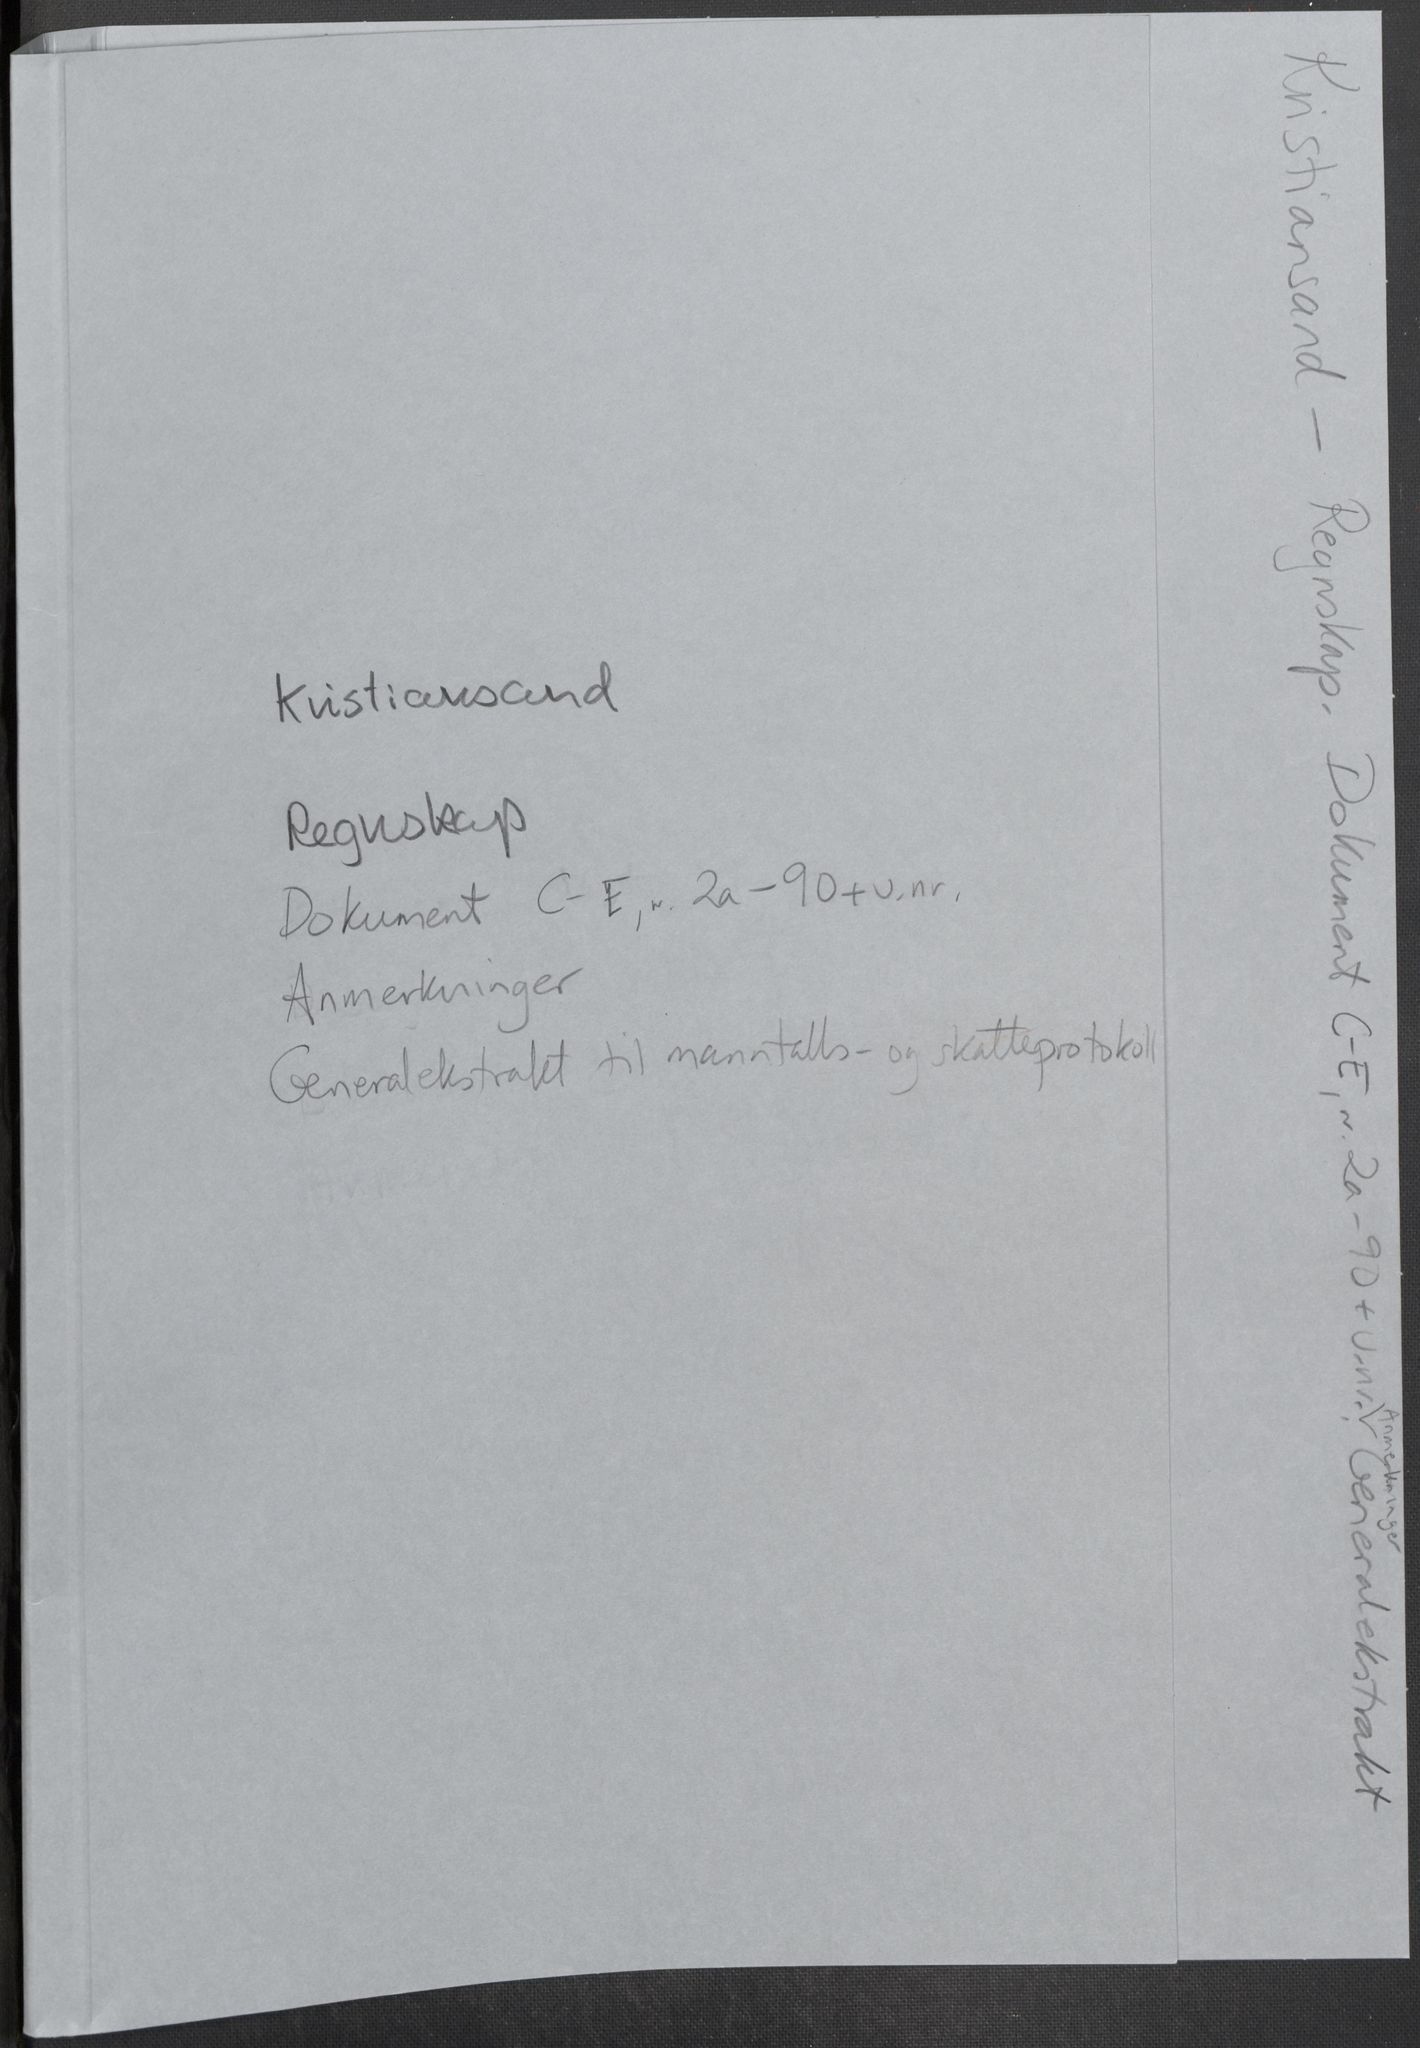 Kristiansand
Regnskap
Dokument C-E, n. 2a-90+u.nr.
Anmerkninger
Generalekstrakt til manntalls- og skatteprotokoll
Kristiansand - Regnskap. Dokument C-E, n. 2a-90+u.nr. Generalekstrakt
Anmerkninger